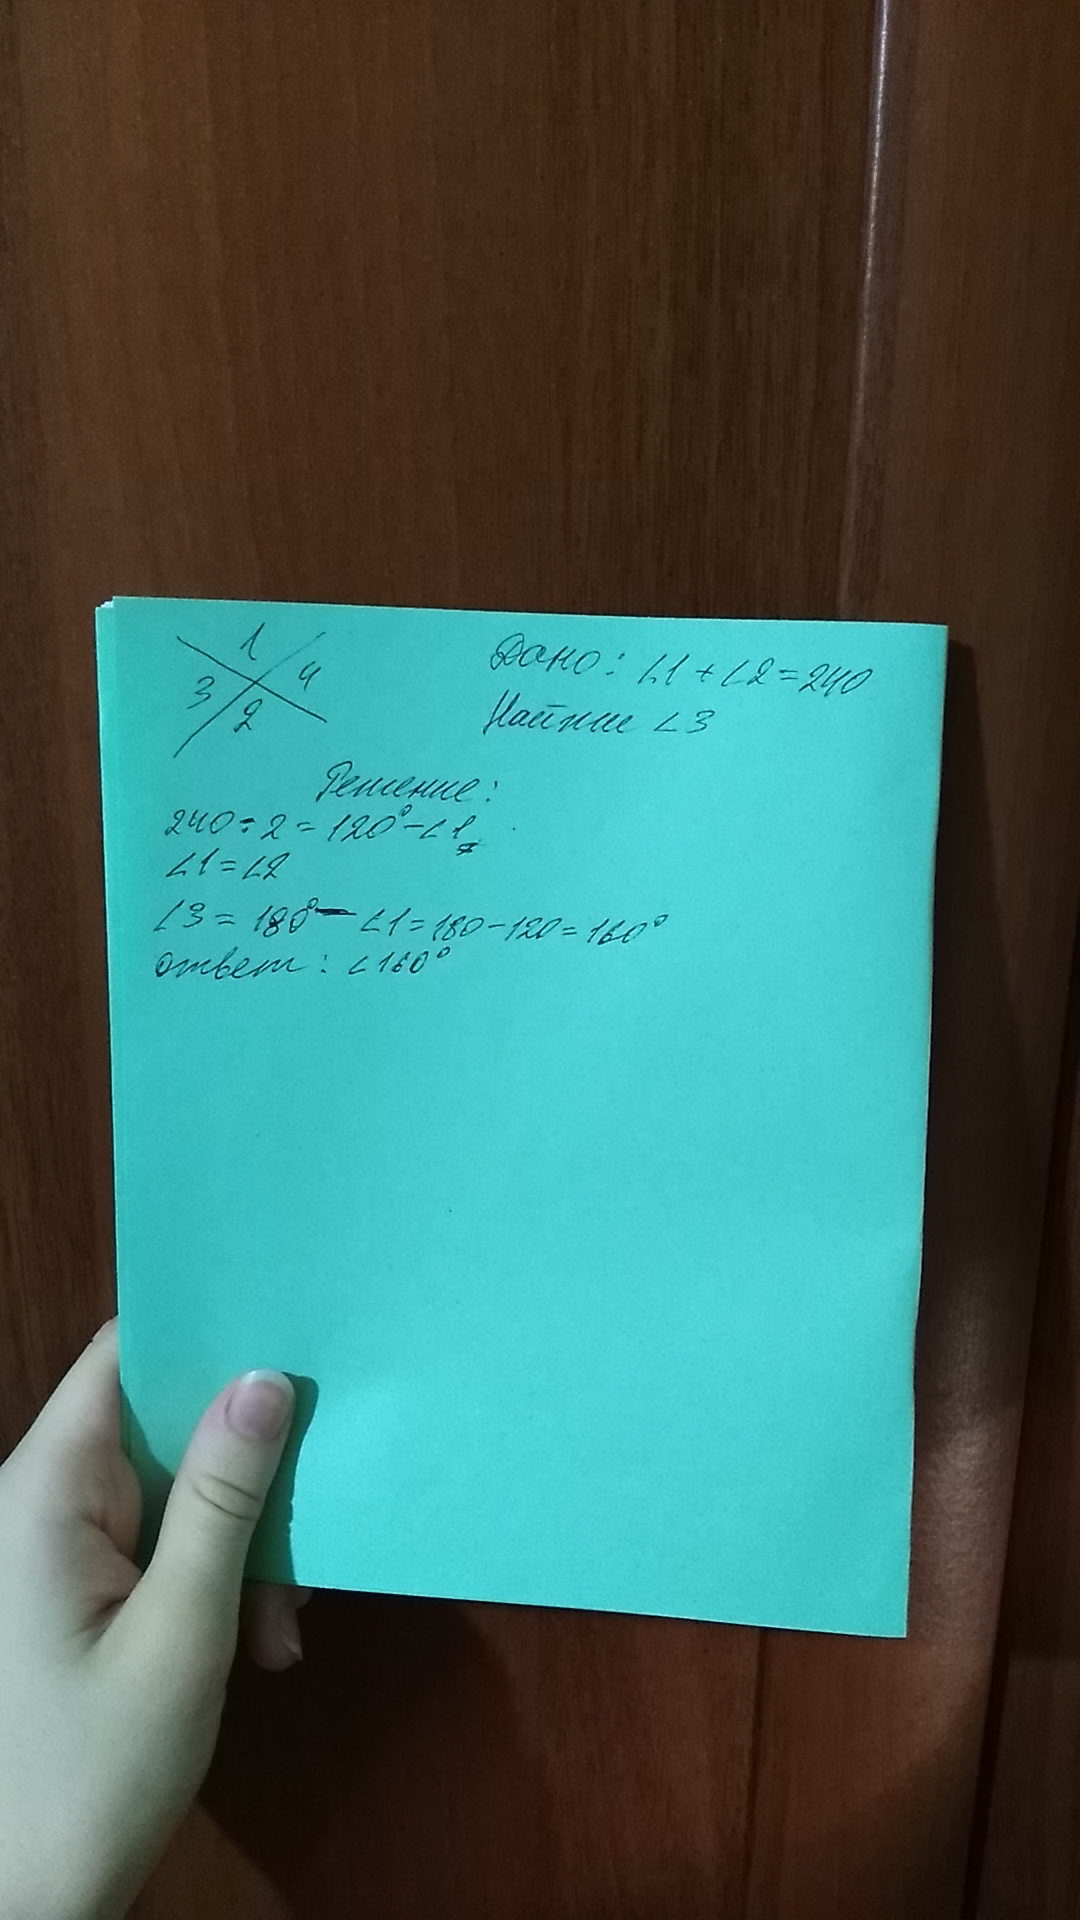 1
3 4
2
Дано: ∠1 + ∠2 = 240
Найти ∠3
Решение:
240 ÷ 2 = 120° - ∠1
∠1 = ∠2
∠3 = 180° - ∠1 = 180 - 120 = 160°
ответ: ∠160°